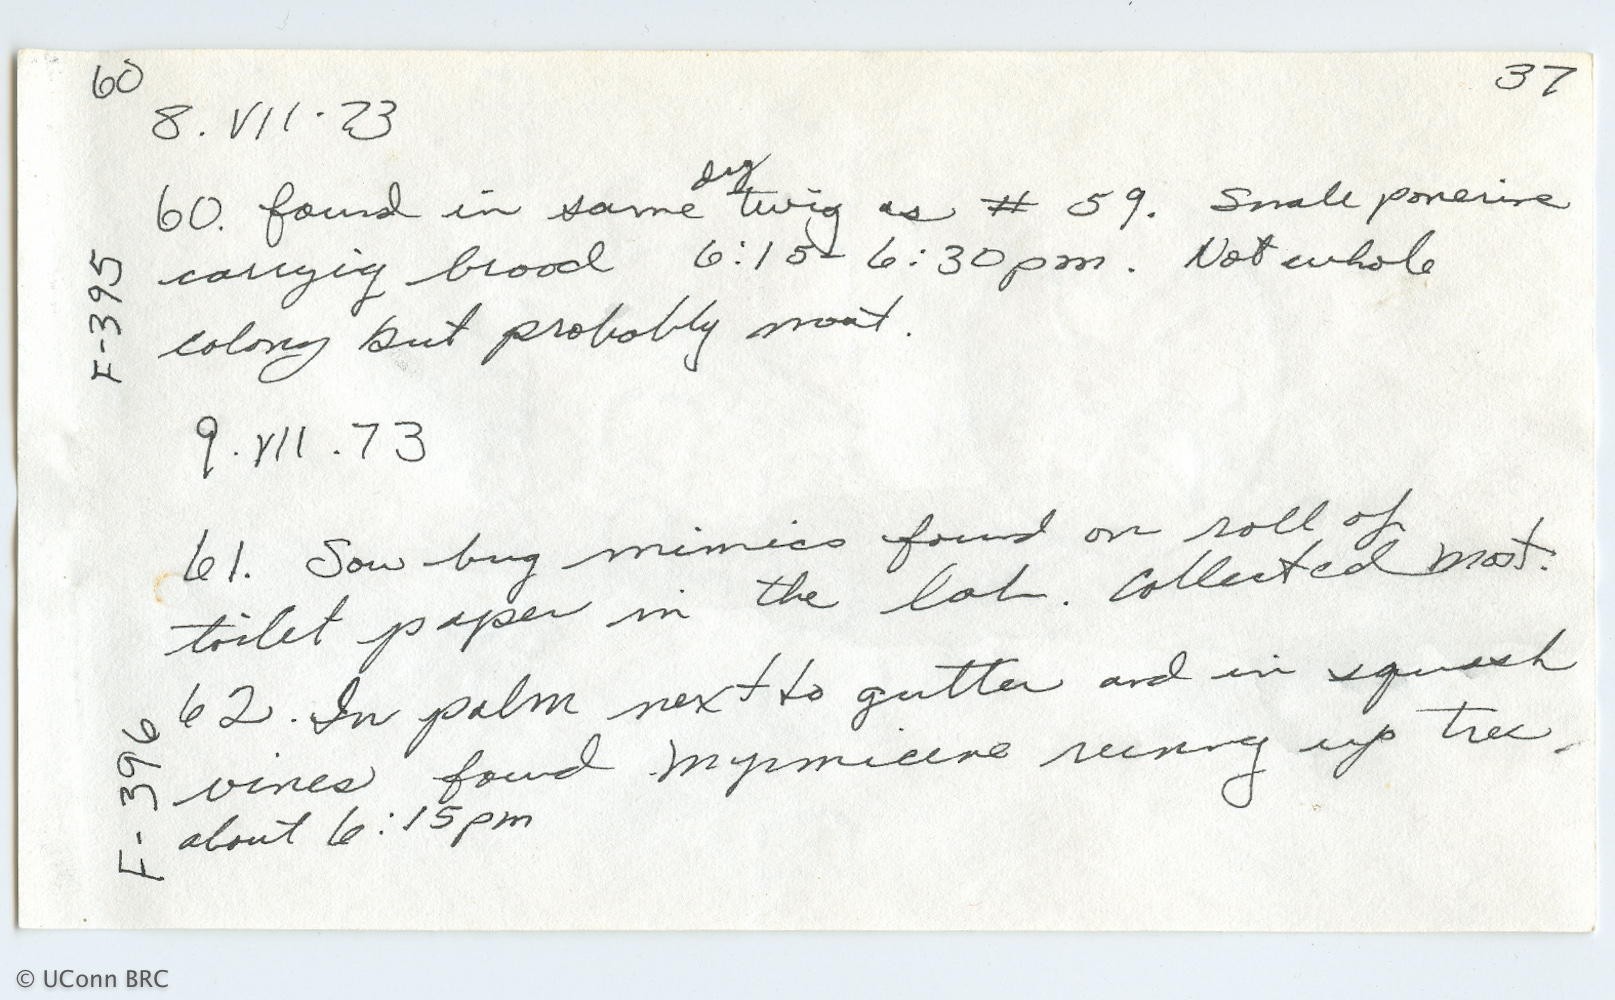 60
37
8.VII.73
dry
60. found in same twig as # 59. Small ponerine
carryig brood 6:15-6:30pm. Not whole
colony but probably most.
F-395
9.VII.73
61. Sow bug mimics found on roll of
toilet paper in the lab. Collected most.
62. In palm next to gutter and in squash
vines found Myrmicine running up tree.
about 6:15pm
F-396
© UConn BRC